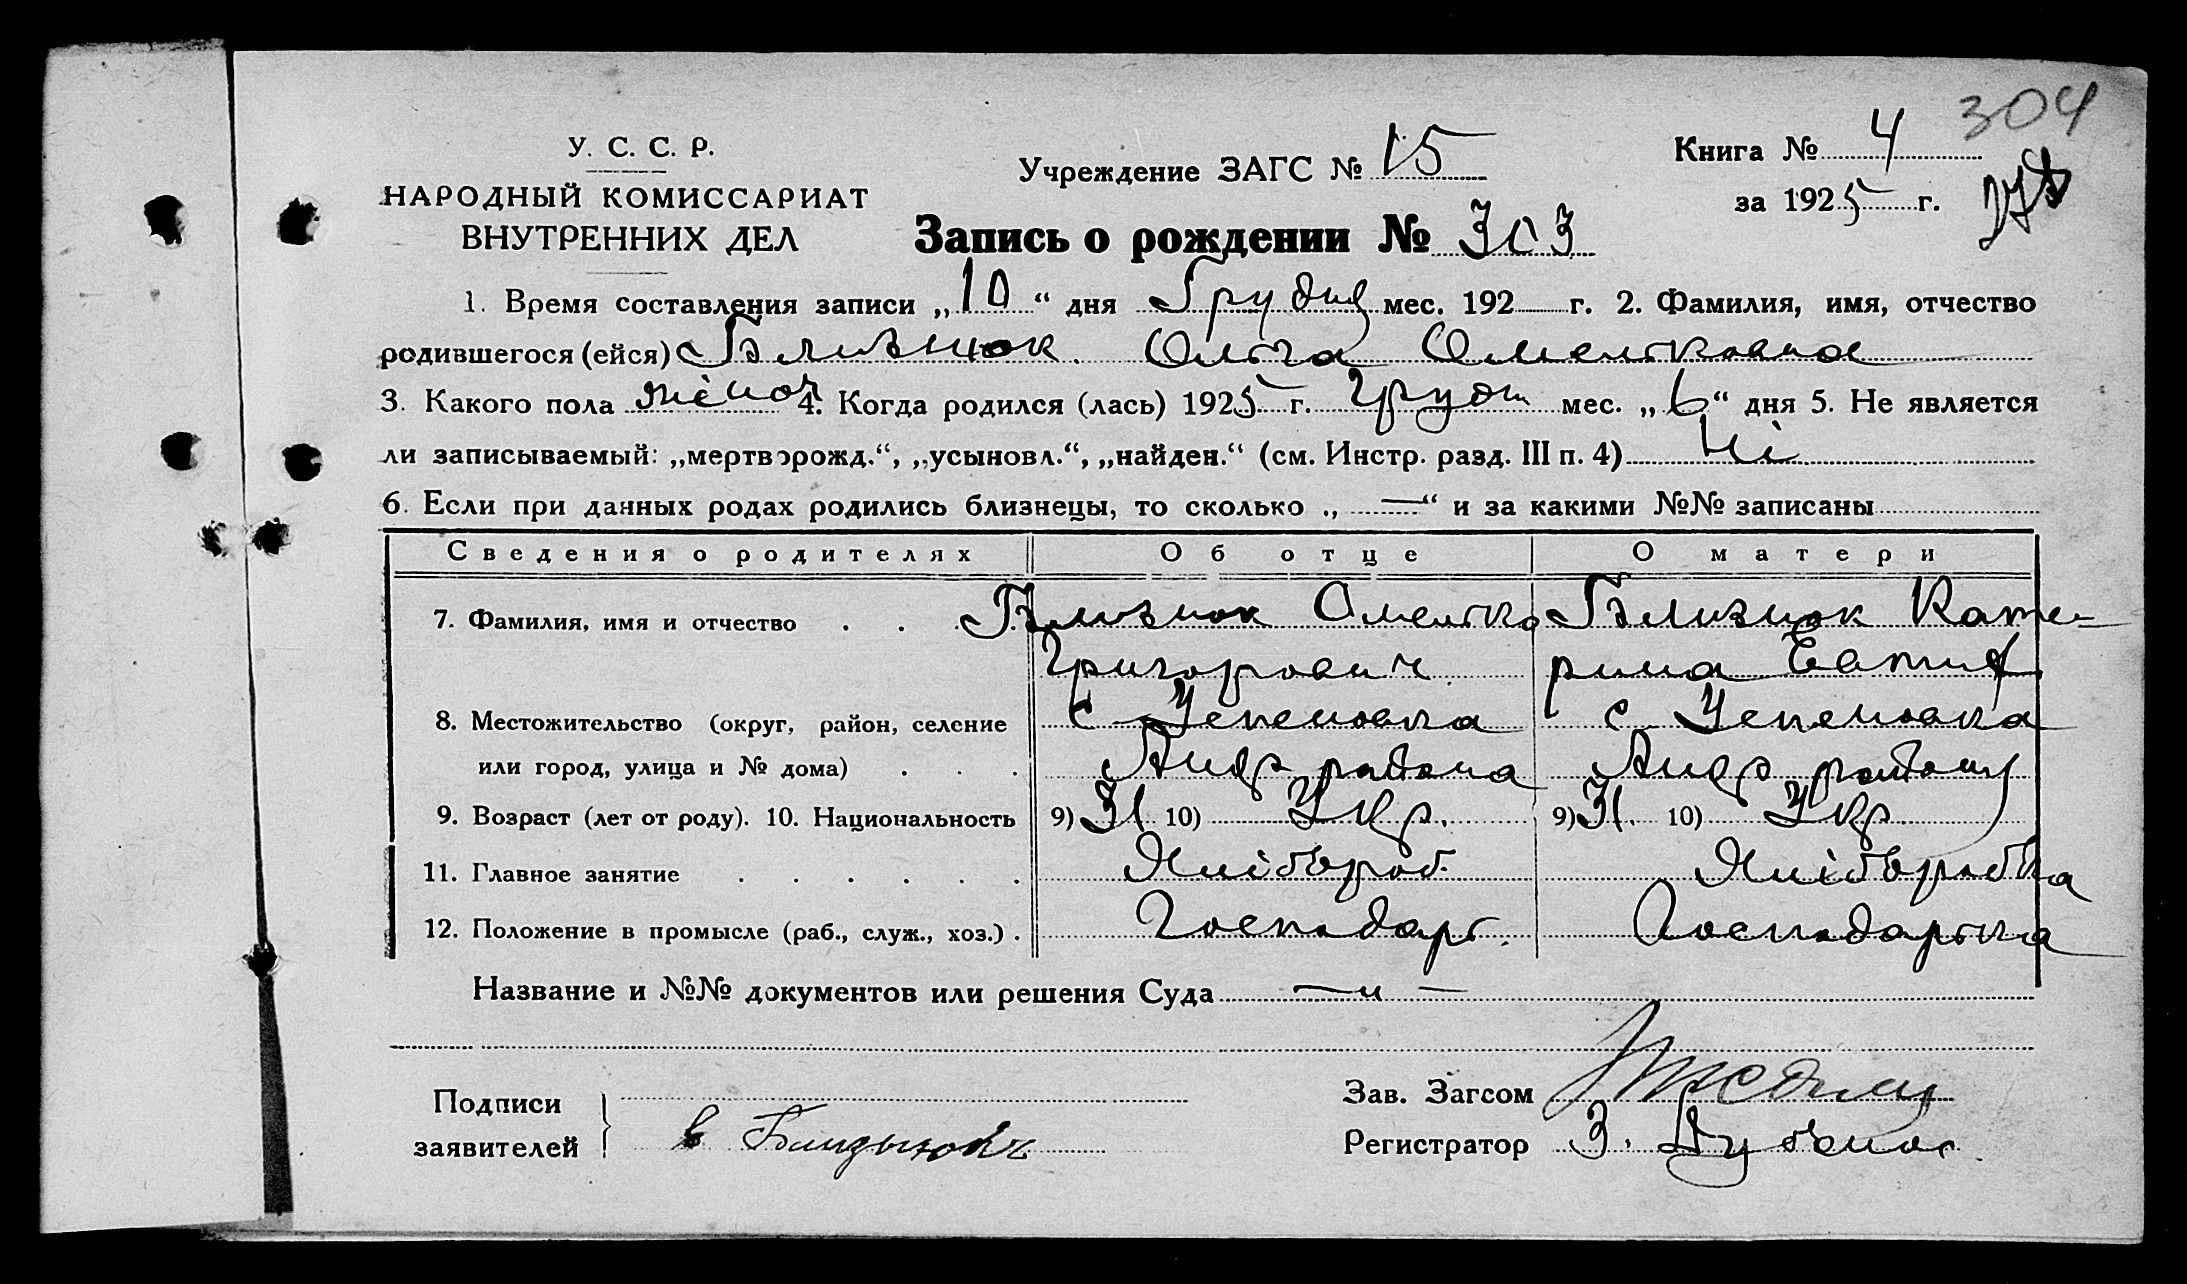 304
У. С. С. Р.
НАРОДНЫЙ КОМИССАРИАТ
ВНУТРЕННИХ ДЕЛ
Учреждение ЗАГС № 15
Книга № 4
за 1925 г.
Запись о рождении № 303
1. Время составления записи „10“ дня Грудня мес. 192 г. 2. Фамилия, имя, отчество
родившегося (ейся) Близнюк Ольга Омельковна
3. Какого пола жіноч 4. Когда родился (лась) 1925 г. Грудн мес. „6“ дня 5. Не является
ли записываемый: „мертворожд.“, „усыновл.“, „найден.“ (см. Инстр. разд. III п. 4) Ні
6. Если при данных родах родились близнецы, то сколько „—“ и за какими №№ записаны
Сведения о родителях Об отце О матери
7. Фамилия, имя и отчество . . . Близнюк Омелько Близнюк Кате-
Григорович рина Евтиф
8. Местожительство (округ, район, селение с Успеновка с Успеновка
или город, улица и № дома) . . . Андр района Андр району
9. Возраст (лет от роду). 10. Национальность 9) 31 10) Укр. 9) 31. 10) Укр
11. Главное занятие . . . . . . Хліборob. Хліборобка
12. Положение в промысле (раб., служ., хоз.) . Господарь. Господарька
Название и №№ документов или решения Суда — „ —
Подписи
заявителей
Зав. Загсом
Регистратор З.